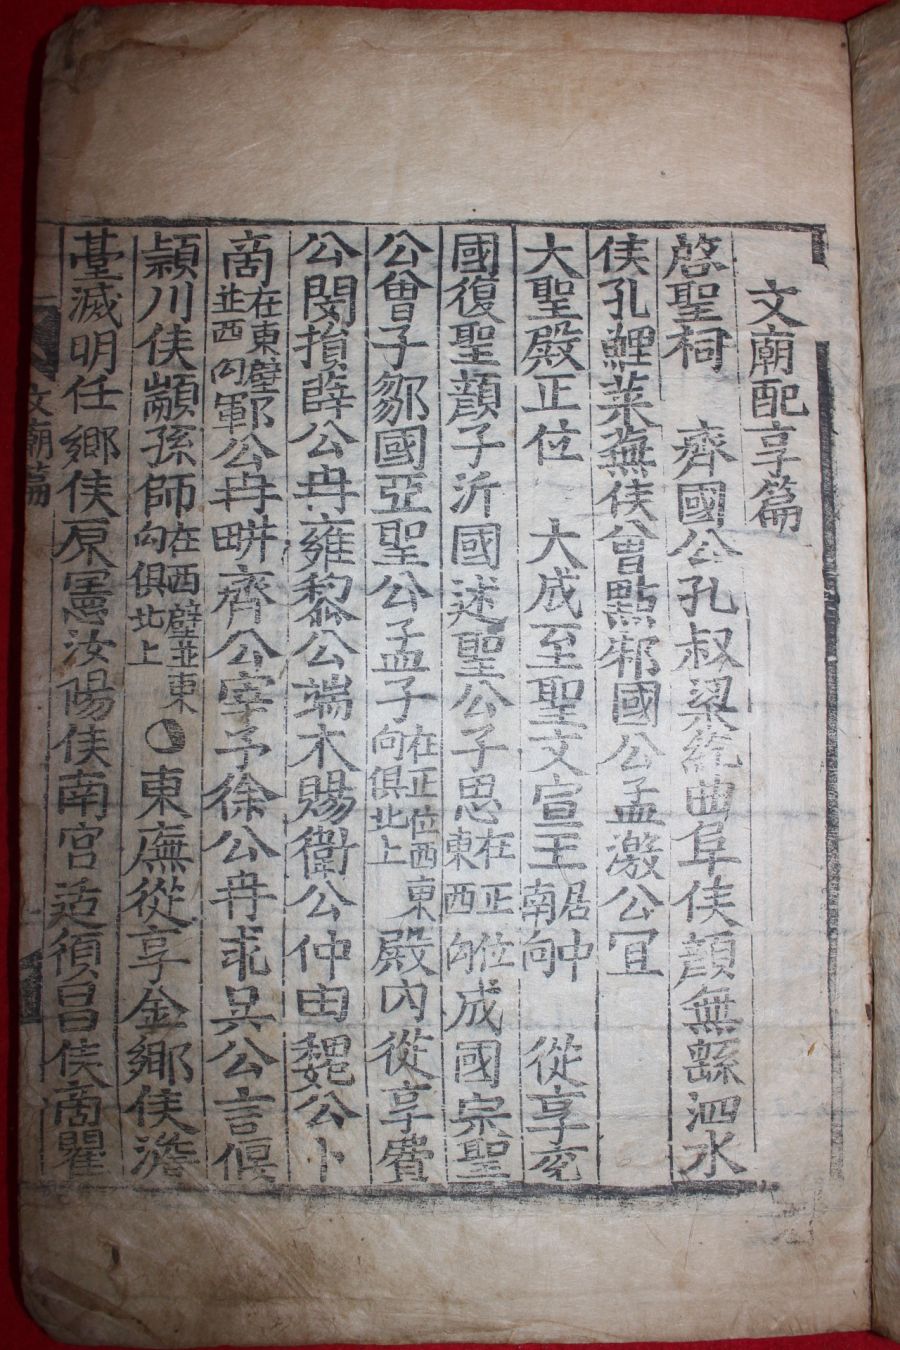 文廟配享篇
啓聖祠　齊國公孔叔梁紇曲阜侯顔無繇泗水
侯孔鯉萊蕪侯曾點邾國公孟激公宜
大聖殿正位　大成至聖文宣王居中南向　從享兗
國復聖顔子沂國述聖公子思在正位東西向成國宗聖
公曾子鄒國亞聖公孟子在正位西東向俱北上殿內從享費
公閔損薛公冉雍黎公端木賜衛公仲由魏公卜
商在東壁並西向鄆公冉畊齊公宰予徐公冉求吳公言偃
穎川侯顓孫師在西壁並東向俱北上東廡從享金鄉侯澹
臺滅明任鄉侯原憲汝陽侯南宮适須昌侯商瞿
文廟篇